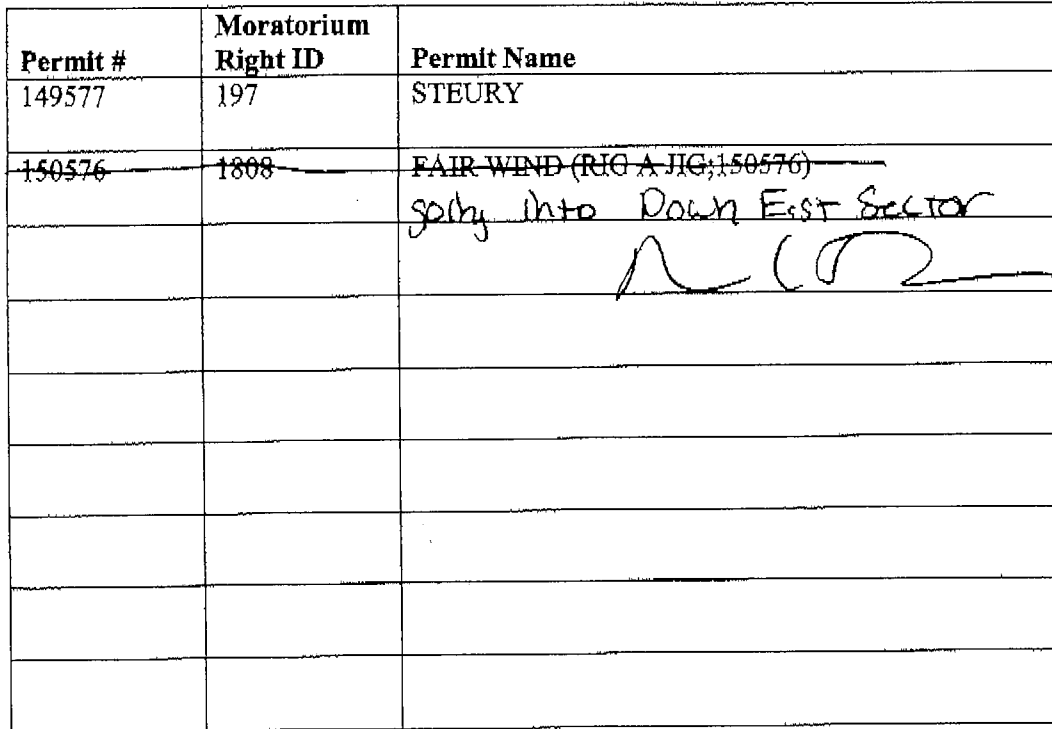 Moratorium
Permit # Right ID Permit Name
149577 197 STEURY
150576 1808 FAIR WIND (RIG A JIG;150576)
going into Down East Sector